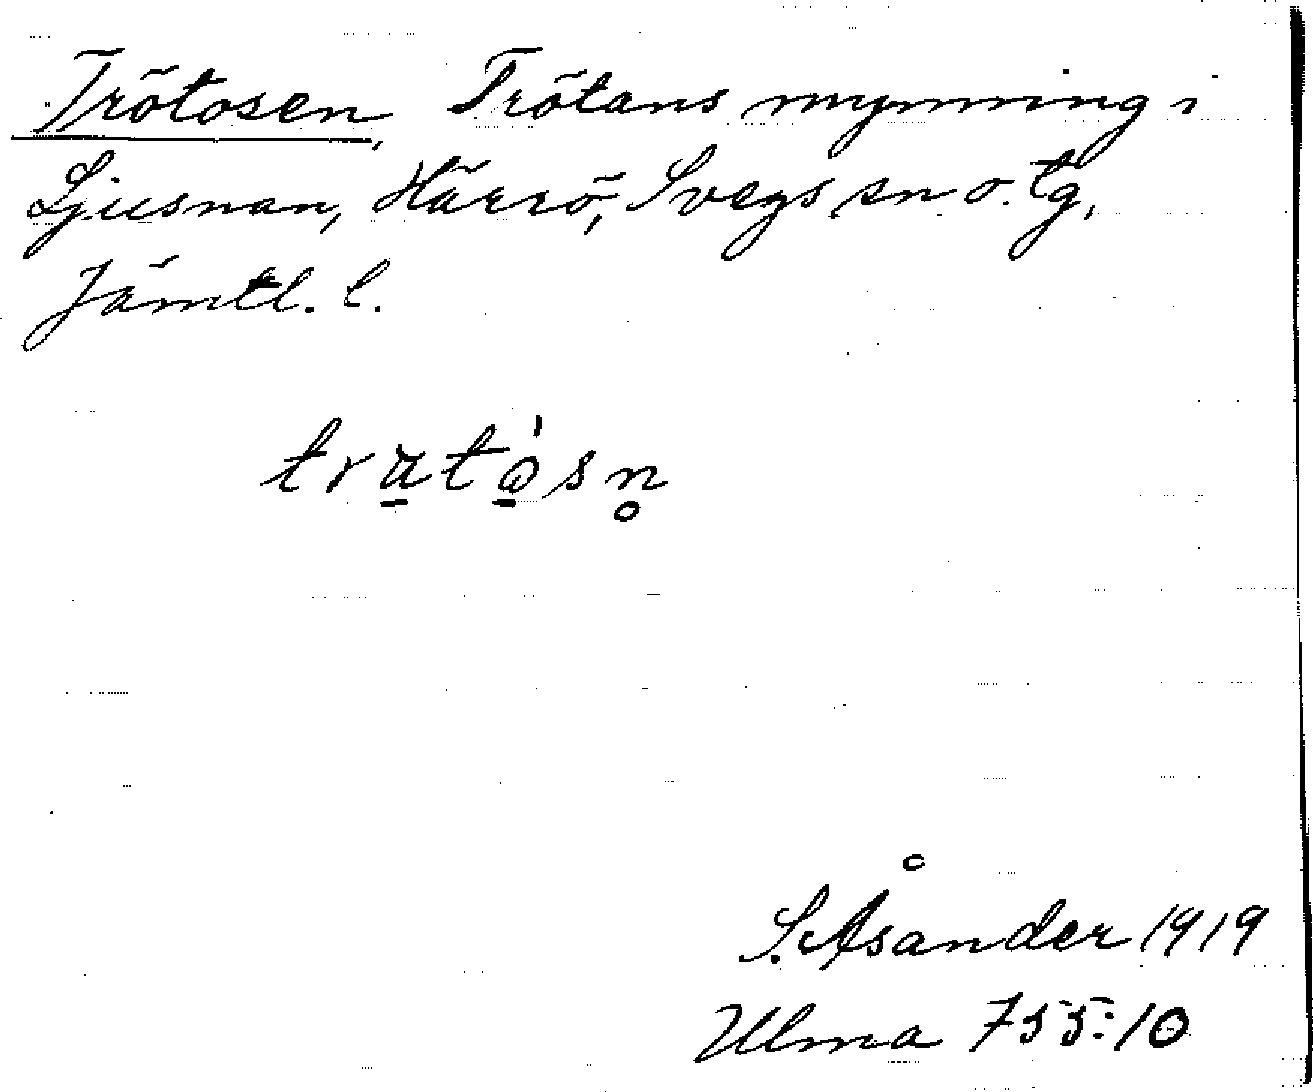 Trötosen, Trötans mynning i
Ljusnan, Härrö, Svegs sn o. tg,
Jämtl. l.
S. Åsander 1919
Ulma 755:10